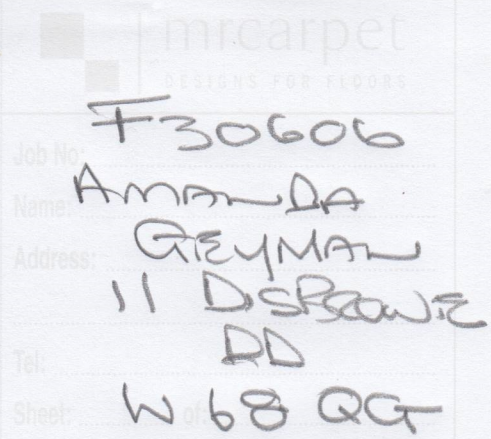 mrcarpet
DESIGNS FOR FLOORS
F30606
Job No:
AMANDA
Name:
GEYMAN
Address:
11 DISBROWE
RD
Tel:
W68 QG
Sheet: of: